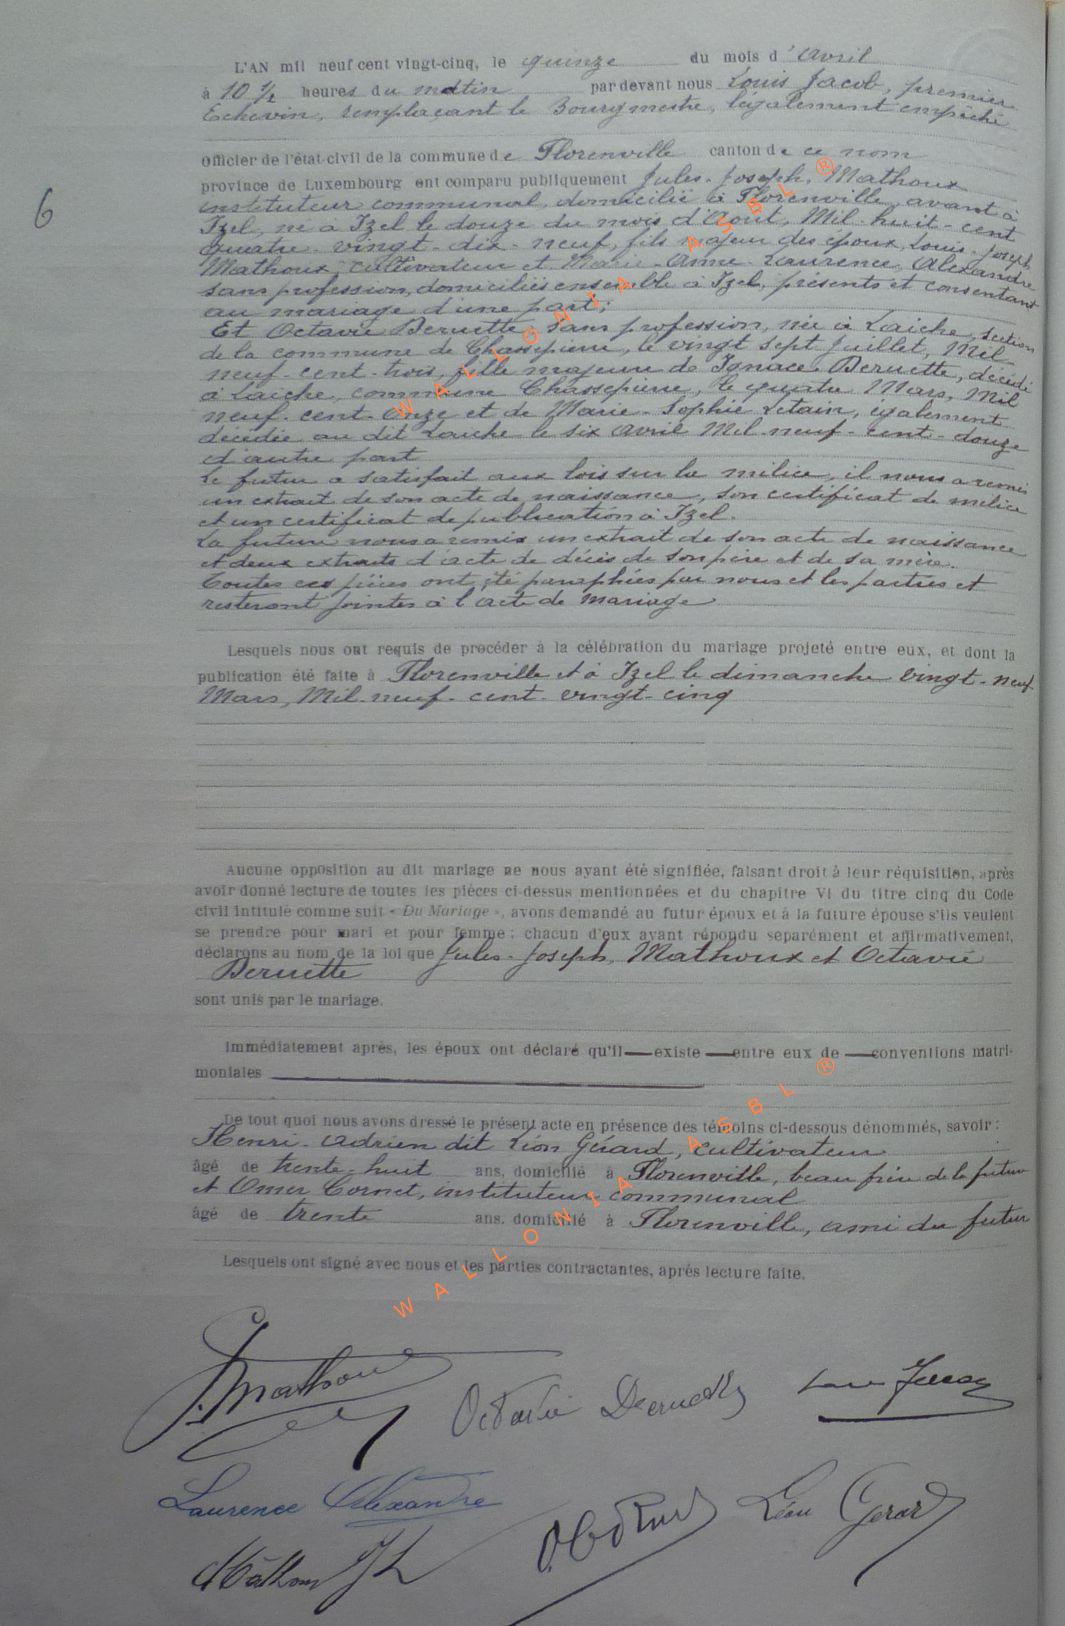 L'AN mil neuf cent vingt-cinq, le quinze du mois d'avril
à 10 ½ heures du matin par devant nous Louis Jacob, premier
Echevin, remplaçant le Bourgmestre, légalement empêché
officier de l'état-civil de la commune de Florenville canton de ce nom
province de Luxembourg ont comparu publiquement Jules-Joseph, Mathoux
instituteur communal, domicilié à Florenville, avant à
Izel, né à Izel le douze du mois d'Août, Mil-huit-cent
quatre-vingt-dix-neuf, fils majeur des époux, Louis-Joseph,
Mathoux, cultivateur et Marie-Anne-Laurence, Alexandre
sans profession, domiciliés ensemble à Izel, présents et consentant
au mariage d'une part;
Et Octavie Deruette, sans profession, née à Laiche, section
de la commune de Chassepierre, le vingt sept Juillet, Mil
neuf-cent-trois, fille majeure de Ignace, Deruette, décédé
à Laiche, commune Chassepierre, le quatre Mars, Mil
neuf-cent-onze et de Marie-Sophie Letain, également
décédée au dit Laiche le six avril Mil-neuf-cent-douze
d'autre part
Le futur a satisfait aux lois sur la milice, il nous a remis
un extrait de son acte de naissance, son certificat de milice
et un certificat de publication à Izel.
La future nous a remis un extrait de son acte de naissance
et deux extraits d'acte de décès de son père et de sa mère.
Toutes ces pièces ont été paraphées par nous et les parties et
resteront jointes à l'acte de mariage
6
Lesquels nous ont requis de procéder à la célébration du mariage projeté entre eux, et dont la
publication été faite à Florenville et à Izel le dimanche vingt-neuf
Mars, Mil-neuf-cent-vingt-cinq
Aucune opposition au dit mariage ne nous ayant été signifiée, faisant droit à leur réquisition, après
avoir donné lecture de toutes les pièces ci-dessus mentionnées et du chapitre VI du titre cinq du Code
civil intitulé comme suit « Du Mariage », avons demandé au futur époux et à la future épouse s'ils veulent
se prendre pour mari et pour femme ; chacun d'eux ayant répondu separément et affirmativement,
déclarons au nom de la loi que Jules-Joseph, Mathoux et Octavie
Deruette
sont unis par le mariage.
Immédiatement après, les époux ont déclaré qu'il — existe — entre eux de — conventions matri-
moniales
De tout quoi nous avons dressé le présent acte en présence des témoins ci-dessous dénommés, savoir :
Henri-Adrien dit Léon Gérard, cultivateur
âgé de trente-huit ans, domicilié à Florenville, beau frère de la future
et Omer Cornet, instituteur communal
âgé de trente ans, domicilié à Florenville, ami du futur
Lesquels ont signé avec nous et les parties contractantes, après lecture faite.
J. Mathoux
Octavie Deruette
Louis Jacob
Laurence Alexandre
O. Cornet
Léon Gérard
Mathoux JL
WALLONIA ASBL ®
WALLONIA ASBL ®